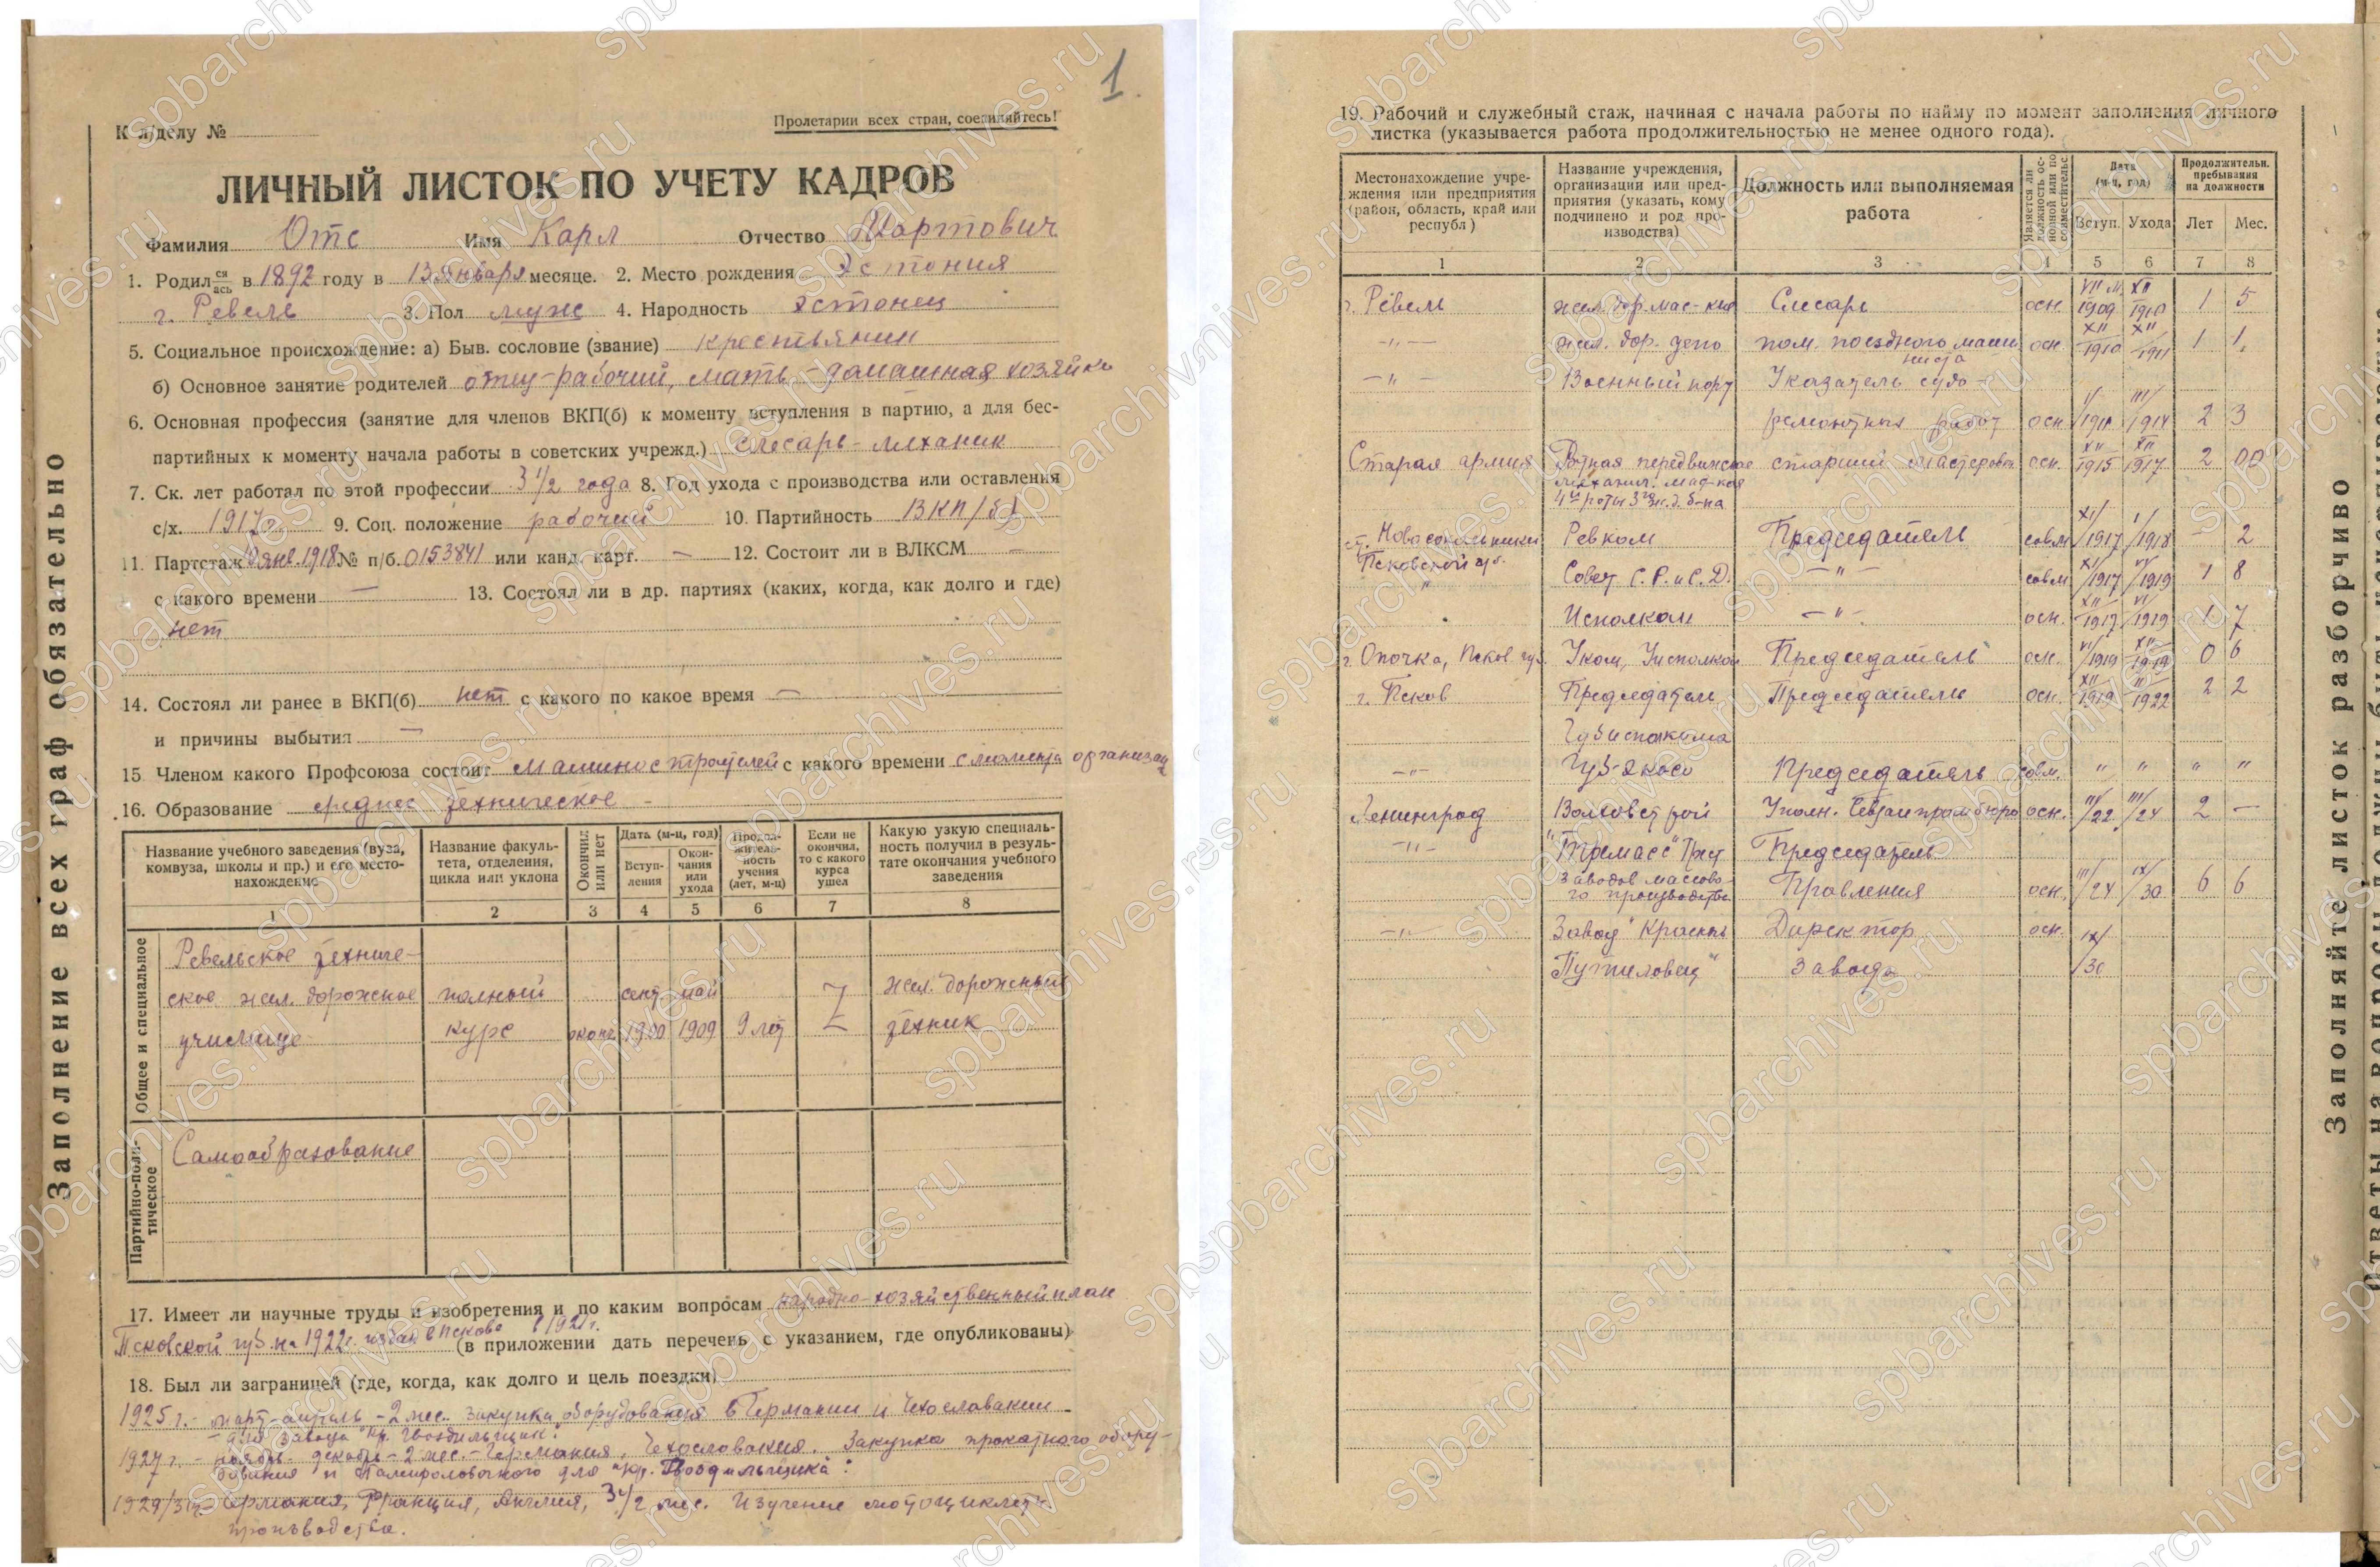 1.
К л/делу №
Пролетарии всех стран, соединяйтесь!
ЛИЧНЫЙ ЛИСТОК ПО УЧЕТУ КАДРОВ
Фамилия Отс Имя Карл Отчество Мартович
1. Родил ся ась в 1892 году в 13 января месяце. 2. Место рождения Эстония
г. Ревель 3. Пол муж 4. Народность эстонец
5. Социальное происхождение: а) Быв. сословие (звание) крестьянин
б) Основное занятие родителей отец-рабочий, мать-домашная хозяйка
6. Основная профессия (занятие для членов ВКП(б) к моменту вступления в партию, а для бес-
партийных к моменту начала работы в советских учрежд.) слесарь-механик
7. Ск. лет работал по этой профессии 3 1/2 года 8. Год ухода с производства или оставления
с/х. 1917 г. 9. Соц. положение рабочий 10. Партийность ВКП/б/
11. Партстаж янв. 1918 № п/б. 0153841 или канд. карт. — 12. Состоит ли в ВЛКСМ —
с какого времени — 13. Состоял ли в др. партиях (каких, когда, как долго и где)
нет
14. Состоял ли ранее в ВКП(б) нет с какого по какое время —
и причины выбытия —
15 Членом какого Профсоюза состоит машиностроителей с какого времени с момента организац
16. Образование среднее техническое -
Название учебного заведения (вуза, комвуза, школы и пр.) и его место-нахождение
Название факуль-тета, отделения, цикла или уклона
Окончил или нет
Дата (м-ц, год)
Вступ-ления
Окон-чания или ухода
Продол-житель-ность учения (лет, м-ц)
Если не окончил, то с какого курса ушел
Какую узкую специаль-ность получил в резуль-тате окончания учебного заведения
1 2 3 4 5 6 7 8
Общее и специальное
Ревельское техниче-
ское жел. дорожное полный сент май жел. дорожный
училище курс оконч 1900 1909 9 лет техник
Партийно-поли-тическое
Самообразование
17. Имеет ли научные труды и изобретения и по каким вопросам народно-хозяйственный план
Псковской губ. на 1922 г. издан в Пскове в 1921 г. (в приложении дать перечень с указанием, где опубликованы)
18. Был ли заграницей (где, когда, как долго и цель поездки)
1925 г. - март-апрель - 2 мес. закупка оборудования в Германии и Чехославакии -
- для завода "Кр. Гвоздильщик".
1927 г. - ноябрь-декабрь - 2 мес. - Германия, Чехословакия. Закупка прокатного обору-
дования и для "Кр. Гвоздильщика".
1929/30 г. Германия, Франция, Англия, 3 1/2 мес. Изучение мотоциклетн.
производства.
Заполнение всех граф обязательно
19. Рабочий и служебный стаж, начиная с начала работы по найму по момент заполнения личного
листка (указывается работа продолжительностью не менее одного года).
Местонахождение учре-ждения или предприятия (район, область, край или республ)
Название учреждения, организации или пред-приятия (указать, кому подчинено и род про-изводства)
Должность или выполняемая работа
Является ли должность ос-новной или по совместительс
Дата (м-ц, год)
Вступ. Ухода
Продолжительн. пребывания на должности
Лет Мес.
1 2 3 4 5 6 7 8
г. Ревель жел. дор. мас-кия Слесарь осн. VII м. 1909 XII 1910 1 5
-"- жел. дор. депо пом. поездного маши осн. XII 1910 XII 1911 1 1.
ниста
-"- Военный порт Указатель судо-
ремонтных работ осн I/1911 III/1914 2 3
Старая армия Ротная передвижная старший мастеровой осн. XII 1915 XII 1917 2 00
механич. маст-кая
4й роты 3го ж.д. б-на
ст. Новосокольники Ревком Председатель совм XI/1917 I/1918 — 2
Псковской губ.
" Совет С.Р. и С.Д. —"— совм XI/1917 VI/1919 1 8
Исполком —"— осн. XII/1917 VI/1919 1 7
г. Опочка, Псков губ. Уком, Уисполком Председатель осн. VI/1919 XII 1919 0 6
г. Псков Председатель Председатель осн. XII 1919 II 1922 2 2
Губисполкома
-"- Губ-экосо Председатель совм. " " " "
Ленинград Волховстрой Уполн. Севзаппромбюро осн. II/22 III/24 2 —
-"- "Тремасс" Трест Председатель
заводов массово-
го производства Правления осн. III/24 IX/30 6 6
-"- Завод "Красны Директор осн. IX/30
Путиловец" завода
Заполняйте листок разборчиво
spbarchives.ru